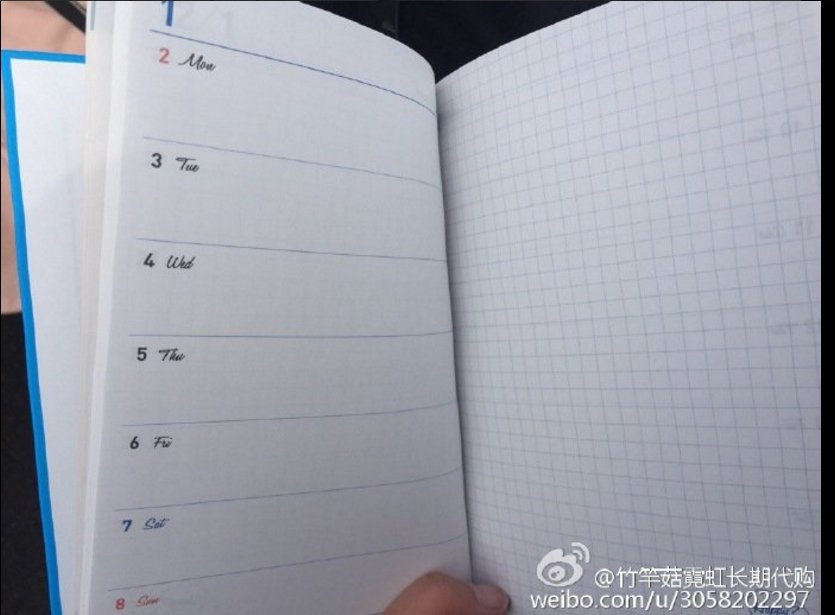 1
2 Mon
3 Tue
4 Wed
5 Thu
6 Fri
7 Sat
8 Sun
@竹竿菇霓虹长期代购
weibo.com/u/3058202297